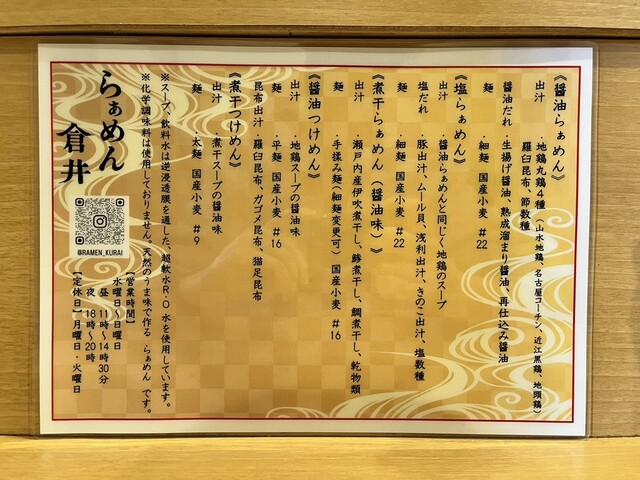 《醤油らぁめん》
出汁　・地鶏丸鶏４種（山水地鶏、名古屋コーチン、近江黒鶏、地頭鶏）
羅臼昆布、節数種
醤油だれ　・生揚げ醤油、熟成溜まり醤油、再仕込み醤油
麺　・細麺 国産小麦 ＃22
《塩らぁめん》
出汁　・醤油らぁめんと同じく地鶏のスープ
塩だれ　・豚出汁、ムール貝、浅利出汁、きのこ出汁、塩数種
麺　・細麺 国産小麦 ＃22
《煮干らぁめん（醤油味）》
出汁　・瀬戸内産伊吹煮干し、鯵煮干し、鯛煮干し、乾物類
麺　・手揉み麺（細麺変更可）国産小麦 ＃16
《醤油つけめん》
出汁　地鶏スープの醤油味
麺　・平麺 国産小麦 ＃16
昆布出汁　・羅臼昆布、ガゴメ昆布、猫足昆布
《煮干つけめん》
出汁　・煮干スープの醤油味
麺　・太麺 国産小麦 ＃9
※スープ、飲料水は逆浸透膜を通した、超軟水R・O 水を使用しています。
※化学調味料は使用しておりません。天然のうま味で作る らぁめん です。
らぁめん 倉井
@RAMEN_KURAI
【営業時間】
水曜日〜日曜日
昼 11時〜14時30分
夜 18時〜20時
【定休日】月曜日・火曜日